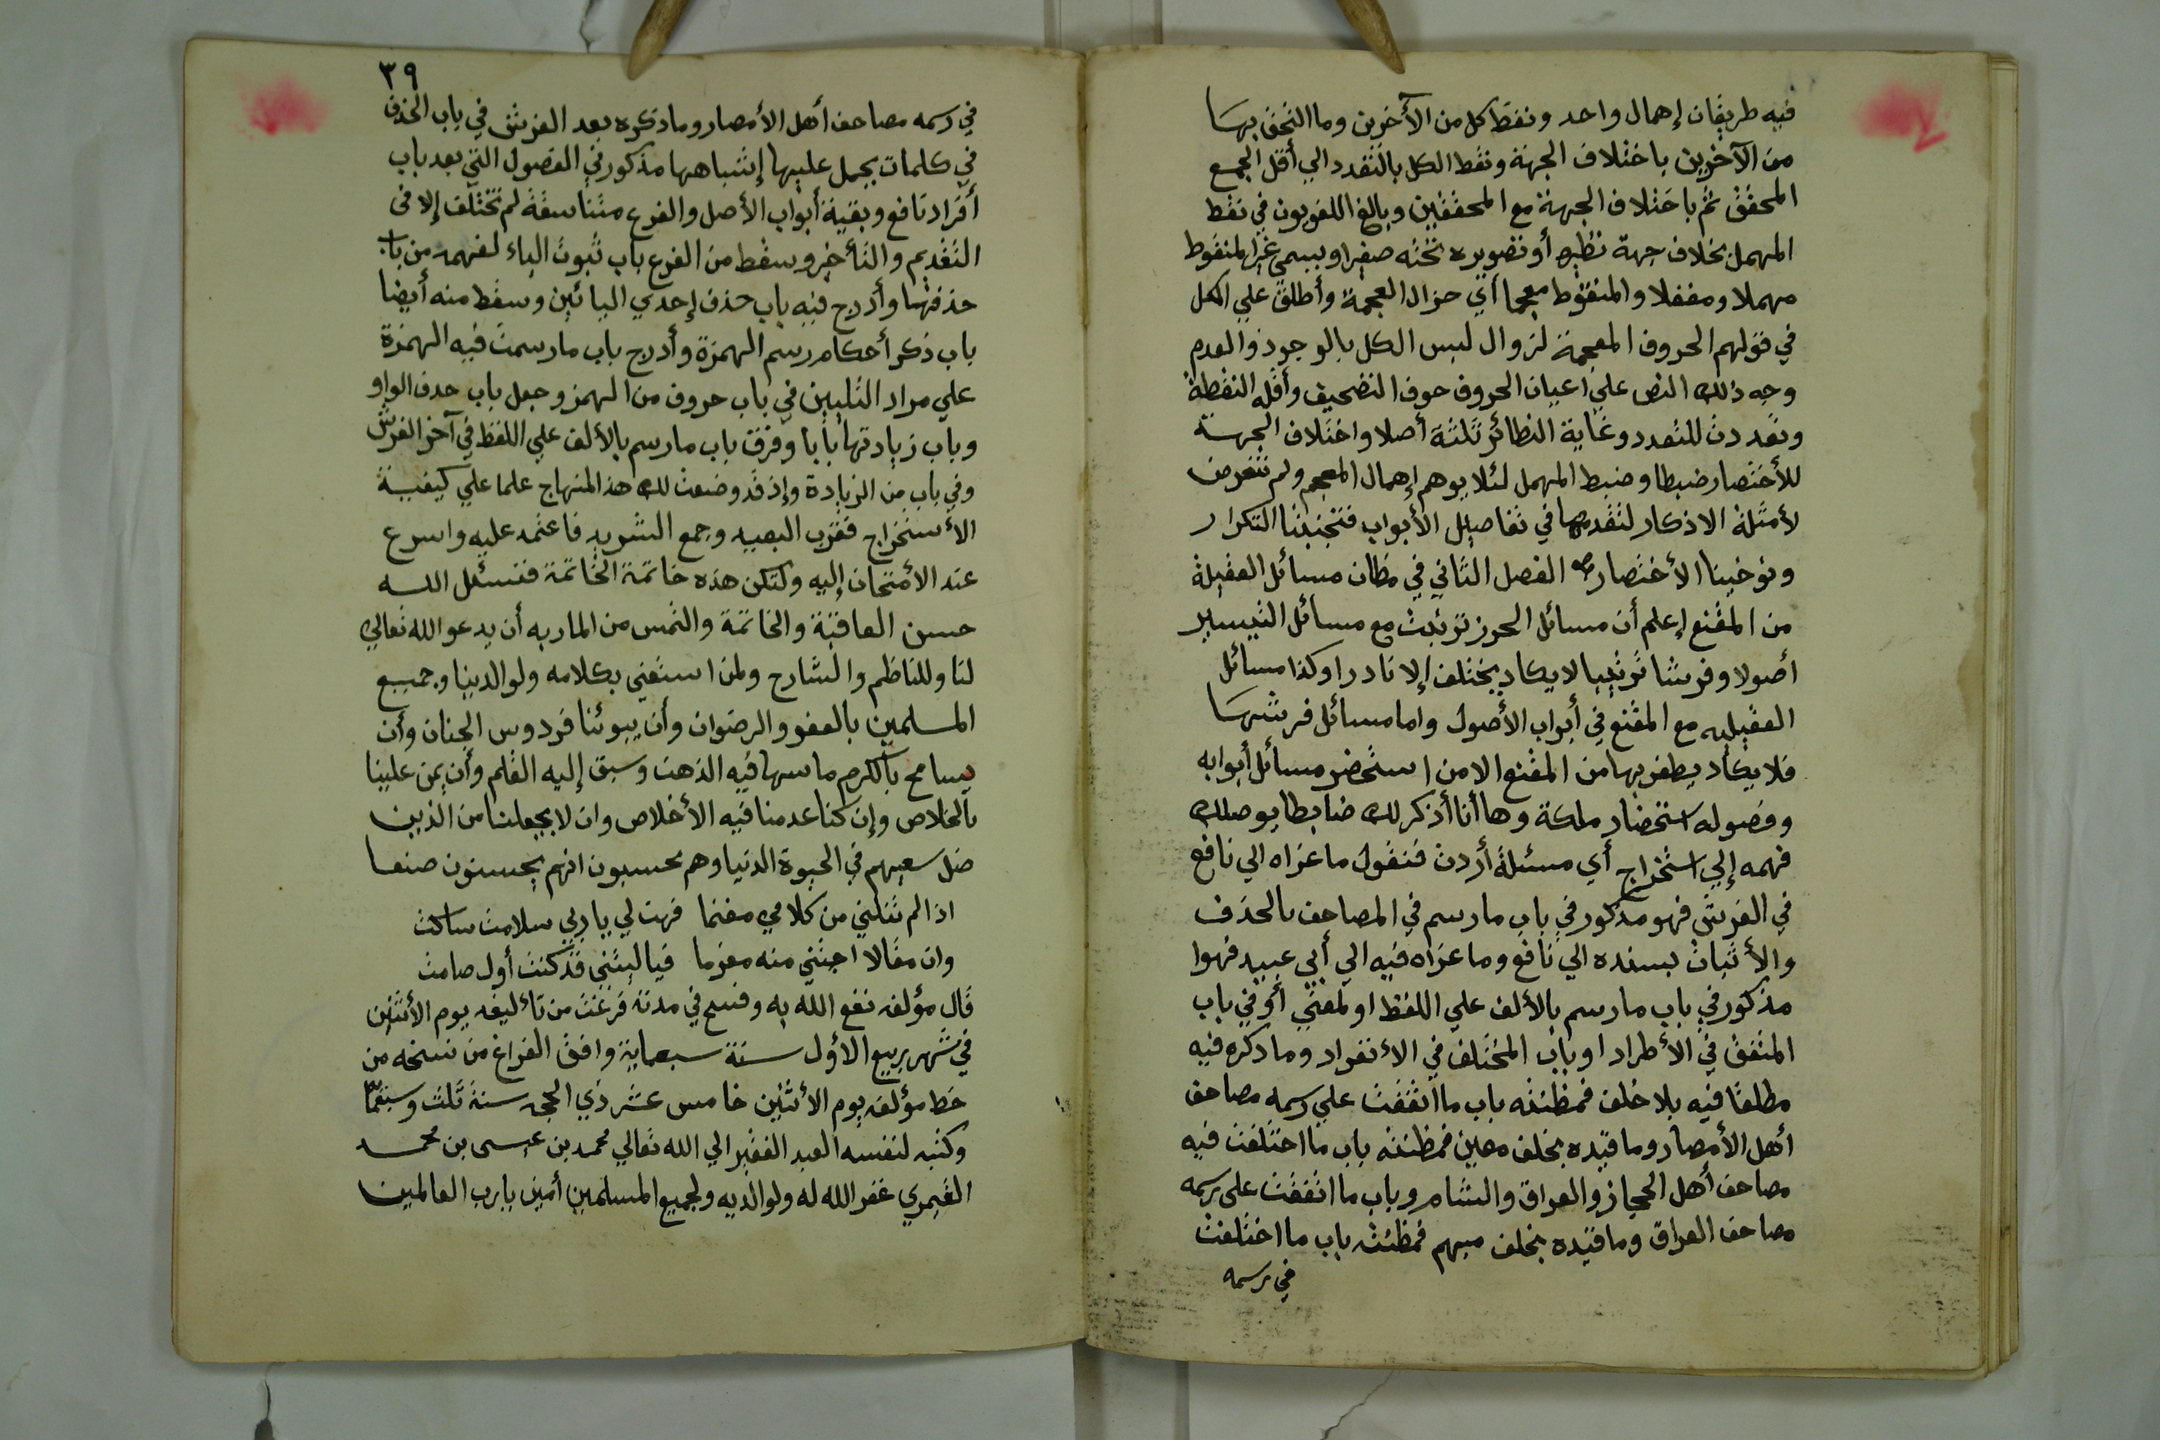 فيه طريقان إهمال واحد ونقط كل من الآخرين وما التحق بها
من الآخرين باختلاف الجهة ونقط الكل بالتقدد الي أقل الجمع
المحقق ثم باختلاف الجهة مع المحققين وبالغ اللغويون في نقط
المهمل بخلاف جهة نظيره أو تصويره تحته صغيرا ويسمي غير المنقوط
مهملا ومغفلا والمنقوط معجما أي مزال العجمة وأطلق علي الكل
في قولهم الحروف المعجمة لزوال لبس الكل بالوجود والعدم
وجه ذلك النص علي اعيان الحروف خوف التصحيف وأقله النقطة
وتعددت للتعدد وغاية النظائر ثلثة أصلا واختلاف الجهة
للأختصار ضبطا وضبط المهمل لئلا يوهم إهمال المعجم ولم نتعرض
لأمثلة الاذكار لتقدمها في تفاصيل الأبواب فتجنبنا التكرار
وتوخينا الأختصار الفصل الثاني في مظان مسائل العقيلة
من المقنع إعلم أن مسائل الحرز ترتبت مع مسائل التيسير
أصولا وفرشا ترتيبا لا يكاد يختلف إلا نادرا وكذا مسائل
العقيليه مع المقنع في أبواب الأصول واما مسائل فرشها
فلا يكاد يظفر بها من المقنع الا من استحضر مسائل أبوابه
وفصوله استحضار ملكة وها أنا أذكر لك ضابطا يوصلك
فهمه إلي استخراج أي مسئلة أردت فنقول ما عزاه الي نافع
في الفرش فهو مذكور في باب ما رسم في المصاحف بالحذف
والأثبات بسنده الي نافع وما عزاه فيه الي أبي عبيد فهوا
مذكور في باب ما رسم بالألف علي اللفظ او لمعني أو في باب
المتفق في الأطراد او باب المختلف في الانفراد وما ذكره فيه
مطلقا فيه بلا خلف فمظنته باب ما اتفقت علي رسمه مصاحف
أهل الأمصار وما قيده بخلف معين فمظنته باب ما اختلفت فيه
مصاحف أهل الحجاز والعراق والشام وباب ما اتفقت على رسمه
مصاحف العراق وما قيده بخلف مبهم فمظنته باب ما اختلفت
في رسمه
٣٩
في رسمه مصاحف أهل الأمصار وما ذكره بعد الفرش في باب الحذف
في كلمات يحمل عليها إشباهها مذكور في الفصول التي بعد باب
أفراد نافع وبقية أبواب الأصل والفرع متناسقة لم تختلف إلا في
التقديم والتأخير وسقط من الفرع باب ثبوت الياء لفهمه من باب
حذفها وأدرج فيه باب حذف إحدي اليائين وسقط منه أيضا
باب ذكر أحكام رسم الهمزة وأدرج باب ما رسمت فيه الهمزة
علي مراد التليين في باب حروف من الهمز وجعل باب حذف الواو
وباب زيادتها بابا وفرق باب ما رسم بالألف علي اللفظ في آخر الفرش
وفي باب من الزيادة وإذ قد وضعت لك هذ المنهاج علما علي كيفية
الأستخراج فقرب البعيد وجمع الشريد فاعتمد عليه واسرع
عند الأمتحان إليه ولتكن هذه خاتمة الخاتمة فنسئل الله
حسن العاقبة والخاتمة والتمس من المار به أن يدعو الله تعالي
لنا وللناظم والشارح ولمن استغني بكلامه ولوالدينا وجميع
المسلمين بالعفو والرضوان وأن يبوئنا فردوس الجنان وأن
يسامح بالكرم ما سها فيه الذهن وسبق إليه القلم وأن يمن علينا
بالخلاص وإن كنا عدمنا فيه الأخلاص وان لا يجعلنا من الذين
ضل سعيهم في الحيوة الدنيا وهم يحسبون انهم يحسنون صنعا
اذا لم تنلني من كلامي مغنما فهب لي يا ربي سلامت ساكت
وان مقالا اجتني منه مغرما فيا ليتني قد كنت أول صامت
قال مؤلفه نفع الله به وفسح في مدته فرغت من تأليفه يوم الأثنين
في شهر ربيع الأول سنة سبعماية وافق الفراغ من نسخه من
خط مؤلفه يوم الأثنين خامس عشر ذي الحجه سنة ثلث وسبعما
وكتبه لنفسه العبد الفقير الي الله تعالي محمد بن عيسى بن محمد
القيمري غفر الله له ولوالديه ولجميع المسلمين أمين يا رب العالمين